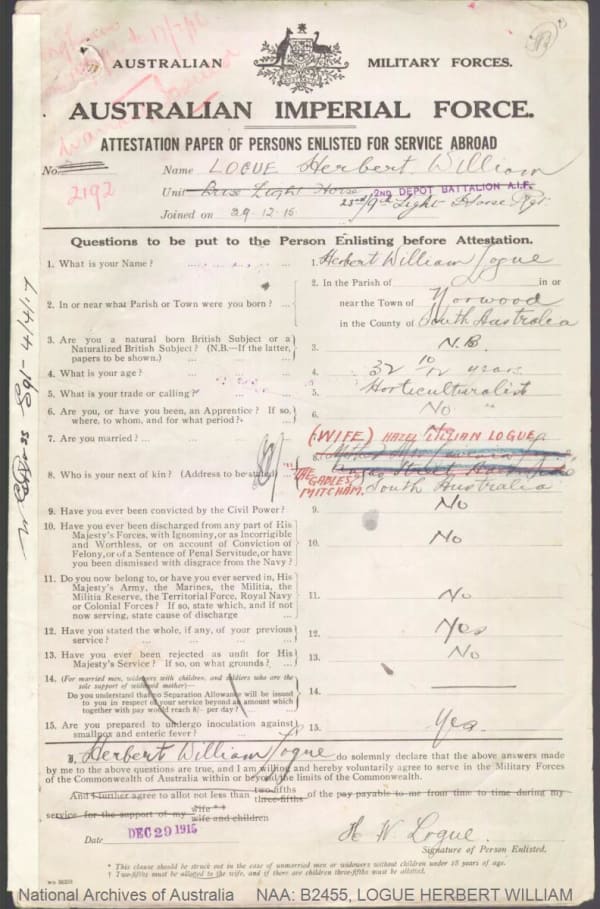 AUSTRALIAN MILITARY FORCES.
AUSTRALIAN IMPERIAL FORCE.
ATTESTATION PAPER OF PERSONS ENLISTED FOR SERVICE ABROAD
No. Name LOGUE Herbert William
2192
Unit Light Horse 2ND DEPOT BATTALION A.I.F.
23rd/9th Light Horse Rgt
Joined on 29.12.15
Questions to be put to the Person Enlisting before Attestation.
1. What is your Name? ... 1. Herbert William Logue
2. In or near what Parish or Town were you born? ... 2. In the Parish of in or
near the Town of Norwood
in the County of South Australia
3. Are you a natural born British Subject or a
Naturalized British Subject? (N.B.—If the latter,
papers to be shown.) ... 3. N.B.
4. What is your age? ... 4. 32 10/12 years
5. What is your trade or calling? ... 5. Horticulturalist
6. Are you, or have you been, an Apprentice? If so,
where, to whom, and for what period? 6. No
7. Are you married? ... No
(WIFE) HAZEL LILLIAN LOGUE
8. Who is your next of kin? (Address to be stated) 8. Mother Mrs
"THE GABLES" MITCHAM.
South Australia
9. Have you ever been convicted by the Civil Power? 9. No
10. Have you ever been discharged from any part of His
Majesty's Forces, with Ignominy, or as Incorrigible
and Worthless, or on account of Conviction of
Felony, or of a Sentence of Penal Servitude, or have
you been dismissed with disgrace from the Navy? 10. No
11. Do you now belong to, or have you ever served in, His
Majesty's Army, the Marines, the Militia, the
Militia Reserve, the Territorial Force, Royal Navy
or Colonial Forces? If so, state which, and if not
now serving, state cause of discharge 11. No
12. Have you stated the whole, if any, of your previous
service? ... 12. Yes
13. Have you ever been rejected as unfit for His
Majesty's Service? If so, on what grounds? 13. No
14. (For married men, widowers with children, and soldiers who are the
sole support of widowed mother)—
Do you understand that no Separation Allowance will be issued
to you in respect of your service beyond an amount which
together with pay would reach 8/- per day? ... 14.
15. Are you prepared to undergo inoculation against
smallpox and enteric fever? ... 15. Yes.
I, Herbert William Logue do solemnly declare that the above answers made
by me to the above questions are true, and I am willing and hereby voluntarily agree to serve in the Military Forces
of the Commonwealth of Australia within or beyond the limits of the Commonwealth.
And I further agree to allot not less than two-fifths three-fifths of the pay payable to me from time to time during my
service for the support of my wife wife and children
Date DEC 29 1915
H. W. Logue.
Signature of Person Enlisted.
* This clause should be struck out in the case of unmarried men or widowers without children under 18 years of age.
† Two-fifths must be allotted to the wife, and if there are children three-fifths must be allotted.
National Archives of Australia NAA: B2455, LOGUE HERBERT WILLIAM